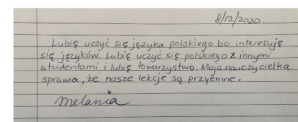 8/12/2020
Lubię uczyć się języka polskiego bo interesuję
się języków. Lubię uczyć się polskiego z innymi
studentami i lubię towarzystwo. Moja nauczycielka
sprawia, że nasze lekcje są przyjemne.
Melania